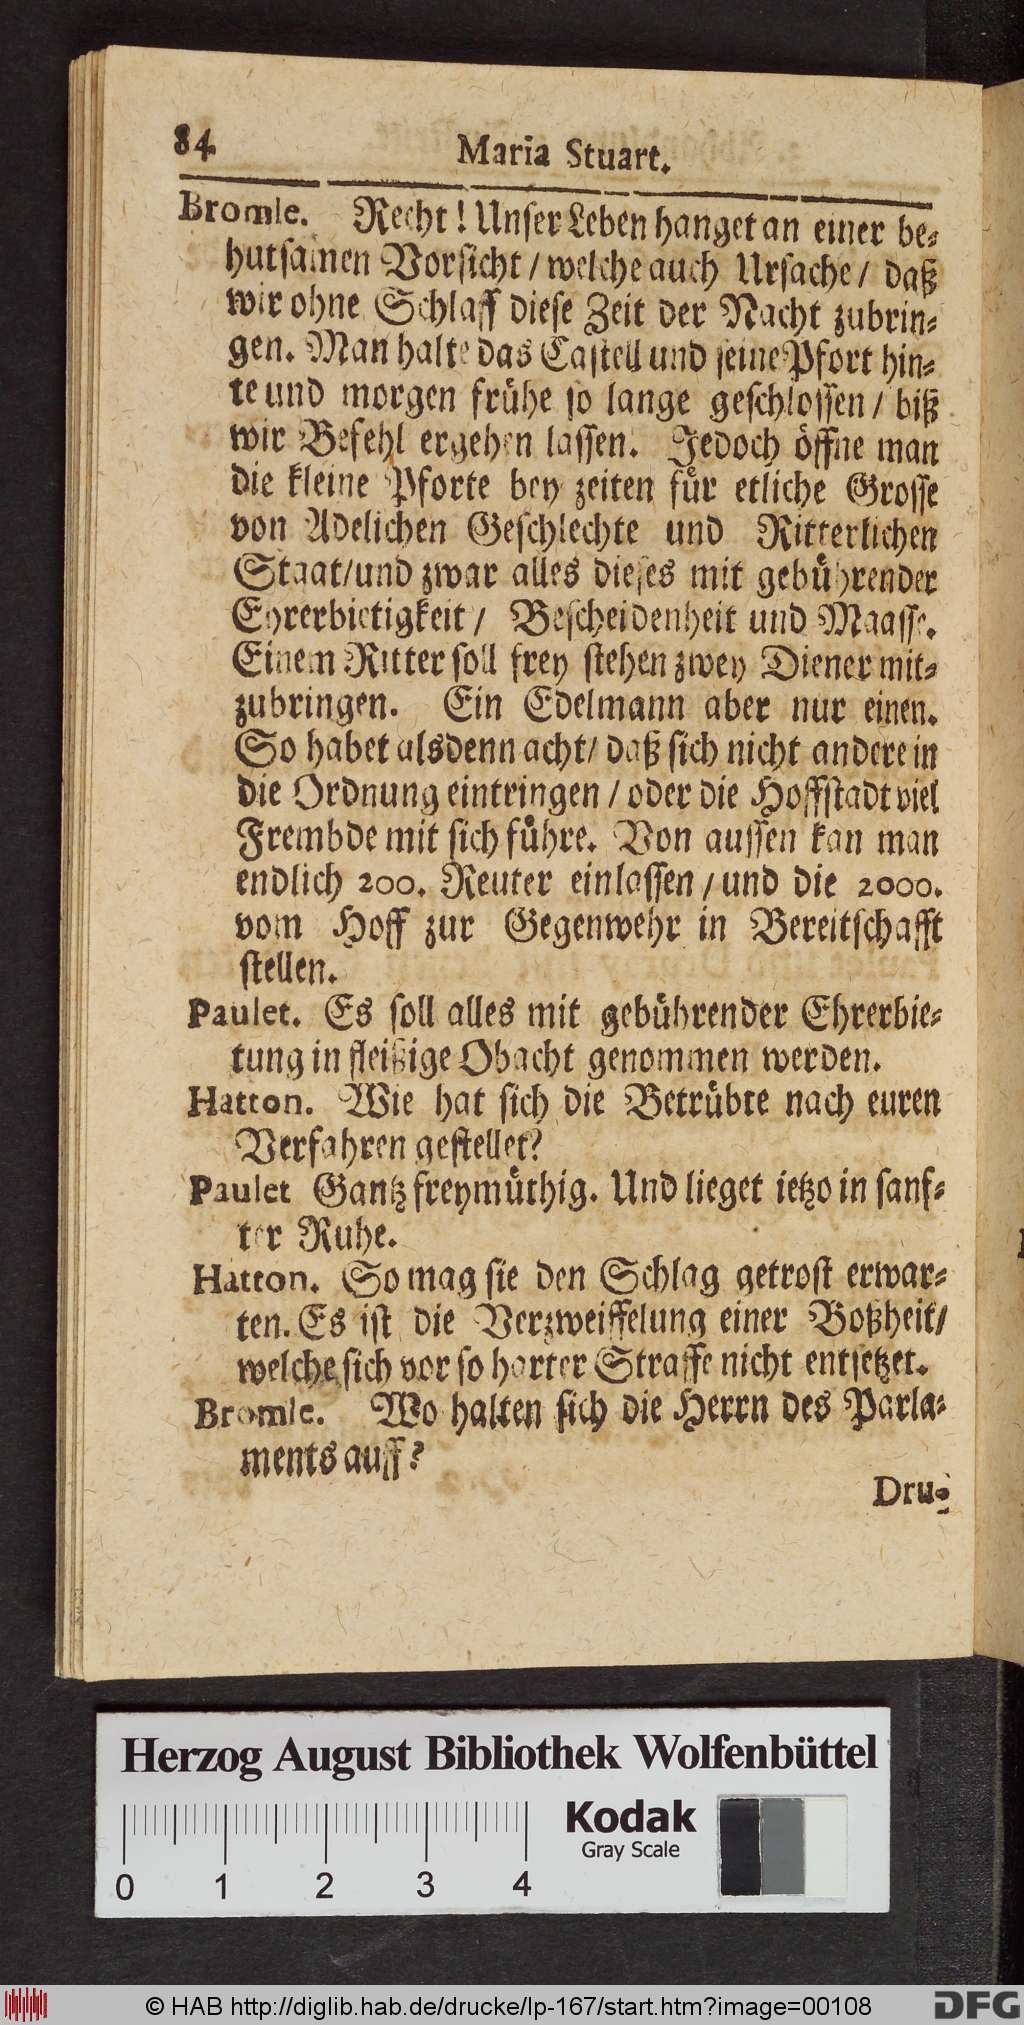 84
Maria Stuart.
Bromle. Recht! Unser Leben hanget an einer be-
hutsamen Vorsicht / welche auch Ursache / daß
wir ohne Schlaff diese Zeit der Nacht zubrin-
gen. Man halte das Castell und seine Pfort hin-
te und morgen frühe so lange geschlossen / biß
wir Befehl ergehen lassen. Jedoch öffne man
die kleine Pforte bey zeiten für etliche Grosse
von Adelichen Geschlechte und Ritterlichen
Staat/und zwar alles dieses mit gebührender
Ehrerbietigkeit / Bescheidenheit und Maasse.
Einem Ritter soll frey stehen zwey Diener mit-
zubringen. Ein Edelmann aber nur einen.
So habet alsdenn acht/ daß sich nicht andere in
die Ordnung eintringen / oder die Hoffstadt viel
Frembde mit sich führe. Von aussen kan man
endlich 200. Reuter einlassen / und die 2000.
vom Hoff zur Gegenwehr in Bereitschafft
stellen.
Paulet. Es soll alles mit gebührender Ehrerbie-
tung in fleißige Obacht genommen werden.
Hatton. Wie hat sich die Betrübte nach euren
Verfahren gestellet?
Paulet Gantz freymüthig. Und lieget ietzo in sanf-
ter Ruhe.
Hatton. So mag sie den Schlag getrost erwar-
ten. Es ist die Verzweiffelung einer Boßheit/
welche sich vor so harter Straffe nicht entsetzet.
Bromle. Wo halten sich die Herrn des Parla-
ments auff?
Dru-
Herzog August Bibliothek Wolfenbüttel
Kodak
Gray Scale
0 1 2 3 4
© HAB http://diglib.hab.de/drucke/lp-167/start.htm?image=00108
DFG